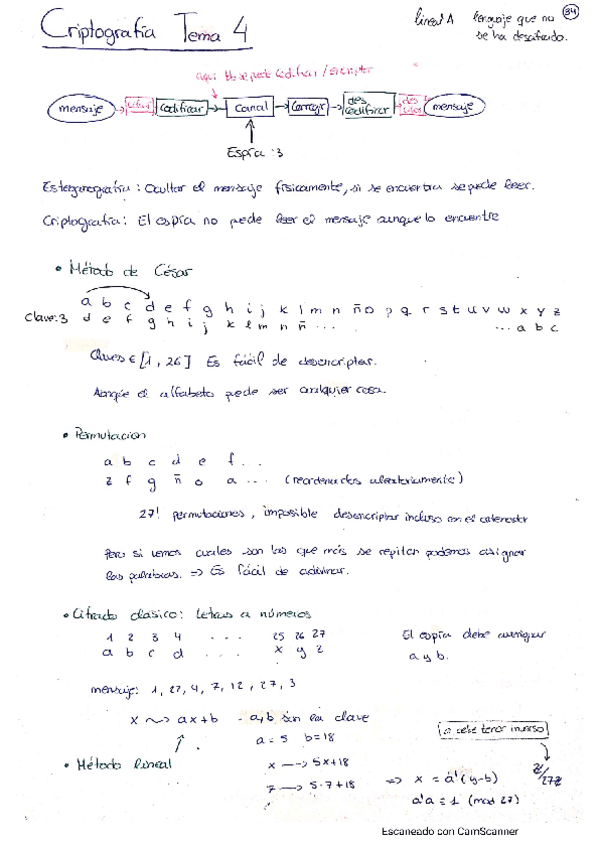 Criptografía Tema 4
lineal A lenguaje que no se ha descifrado.
34
aquí se puede codificar / encriptar
mensaje → cifrar → codificar → canal → corregir → des codificar → des cifrar → mensaje
Espía :3
Esteganografía: Ocultar el mensaje físicamente, si se encuentra se puede leer.
Criptografía: El espía no puede leer el mensaje aunque lo encuentre
• Método de César
a b c d e f g h i j k l m n ñ o p q r s t u v w x y z
Clave: 3 d e f g h i j k l m n ñ ... ... a b c
Claves ∈ [1, 26] Es fácil de desencriptar.
Aunque el alfabeto puede ser cualquier cosa.
• Permutacion
a b c d e f ...
z f g ñ o a ... (reordenarlos aleatoriamente)
27! permutaciones, imposible desencriptar incluso con el ordenador
Pero si vemos cuales son las que más se repiten podemos asignar
las palabras. ⇒ Es fácil de adivinar.
• Cifrado clásico: Letras a números
1 2 3 4 ... 25 26 27
a b c d ... x y z
El espía debe averiguar
a y b.
mensaje: 1, 27, 4, 7, 12, 27, 3
x ⟿ ax+b - a,b son la clave
a=5 b=18
a debe tener inverso
• Método lineal
x → 5x+18
7 → 5·7+18
⇒ x = a'(y-b)
Z/27Z
a'a ≡ 1 (mod 27)
Escaneado con CamScanner